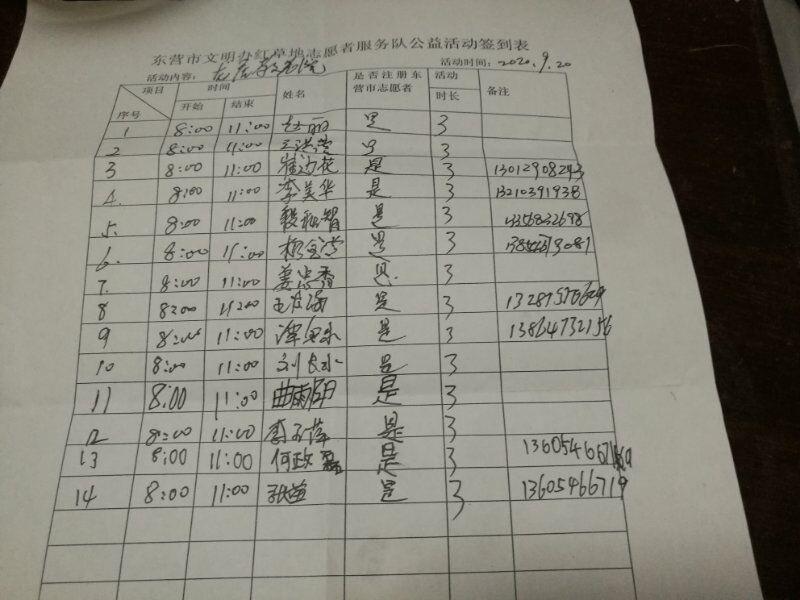 东营市文明办红草地志愿者服务队公益活动签到表
活动内容： 活动时间：2020.9.20
项目 时间 姓名 是否注册东营市志愿者 活动时长 备注
序号 开始 结束
1 8:00 11:00 赵丽 是 3
2 8:00 11:00 是 3
3 8:00 11:00 崔边花 是 3 13012908243
4. 8:00 11:00 李美华 是 3 13210391938
5. 8:00 11:00 是 3 13356832698
6. 8:00 11:00 是 3
7. 8:00 11:00 是 3
8 8:00 11:00 是 3
9 8:00 11:00 是 3 13864732156
10 8:00 11:00 刘长水 是 3
11 8:00 11:00 曲雨阳 是 3
12 8:00 11:00 李子萍 是 3
13 8:00 11:00 何政磊 是 3
14 8:00 11:00 张苗 是 3 13605466719